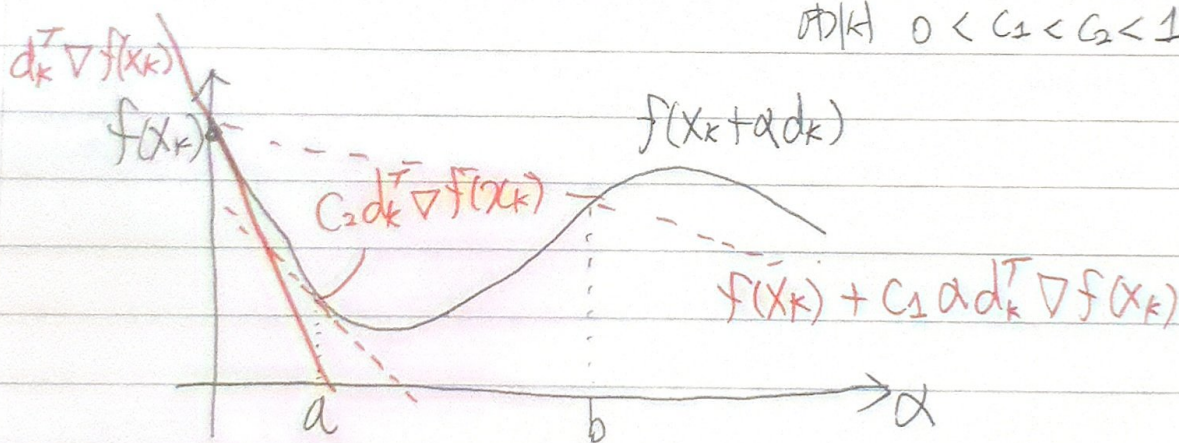 0 < C₁ < C₂ < 1
dₖᵀ ∇ f(xₖ)
f(xₖ)
f(xₖ+αdₖ)
C₂dₖᵀ∇f(xₖ)
f(xₖ) + C₁ α dₖᵀ ∇ f(xₖ)
a
b
α